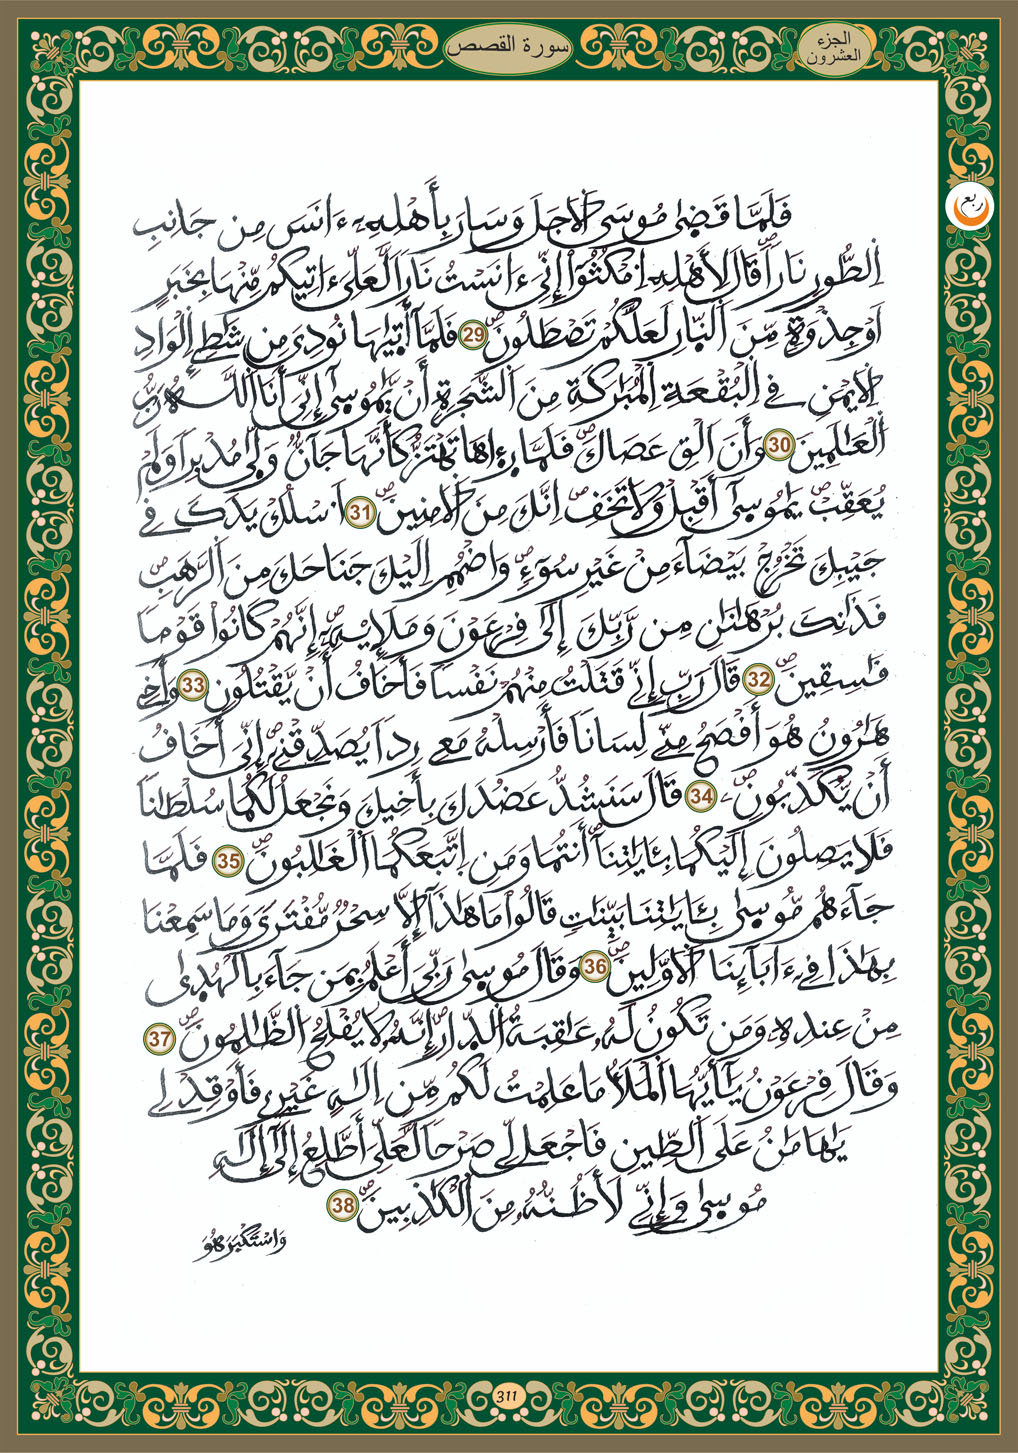 سورة القصص
الجزء العشرون
ربع
فَلَمَّا قَضِىٰ مُوسَى اَلَاجَلَ وَسَارَ بِأَهْلِهِۦٓ ءَانَسَ مِن جَانِبِ
اِلطُّورِ نَاراٗۖ قَالَ لِأَهْلِهِ اِمْكُثُوٓاْ إِنِّيَ ءَانَسْتُ نَاراٗ لَّعَلِّيَ ءَاتِيكُم مِّنْهَا بِخَبَرٍ
اَوْ جِذْوَةٖ مِّنَ اَلنّ۪ارِ لَعَلَّكُمْ تَصْطَلُونَۖ 29 فَلَمَّآ أَت۪ىٰهَا نُودِيَ مِن شَٰطِےِٕ اِلْوَادِ
اِلَايْمَنِ فِي اِلْبُقْعَةِ اِلْمُبَٰرَكَةِ مِنَ اَلشَّجَرَةِ أَنْ يَّٰمُوس۪ىٰٓ إِنِّيَ أَنَا اَللَّهُ رَبُّ
اُلْعَٰلَمِينَ 30 وَأَنَ اَلْقِ عَصَاكَۖ فَلَمَّا ر۪ء۪اهَا تَهْتَزُّ كَأَنَّهَا جَآنّٞ وَلّ۪ىٰ مُدْبِراٗ وَلَمْ
يُعَقِّبْۖ يَٰمُوس۪ىٰٓ أَقْبِلْ وَلَا تَخَفِۖ اِنَّكَ مِنَ اَلَامِنِينَۖ 31 اَ۟سْلُكْ يَدَكَ فِي
جَيْبِكَ تَخْرُجْ بَيْضَآءَ مِنْ غَيْرِ سُوٓءٖۖ وَاضْمُمِ اِلَيْكَ جَنَاحَكَ مِنَ اَلرَّهَبِۖ
فَذَٰنِكَ بُرْهَٰنَٰنِ مِن رَّبِّكَ إِلَىٰ فِرْعَوْنَ وَمَلَإِيْهِۦٓۖ إِنَّهُمْ كَانُواْ قَوْماٗ
فَٰسِقِينَۖ 32 قَالَ رَبِّ إِنِّي قَتَلْتُ مِنْهُمْ نَفْساٗ فَأَخَافُ أَنْ يَّقْتُلُونِۖ 33 وَأَخِي
هَٰرُونُ هُوَ أَفْصَحُ مِنِّي لِسَاناٗ فَأَرْسِلْهُ مَعِي رِداٗ يُصَدِّقْنِيۖ إِنِّيَ أَخَافُ
أَنْ يُّكَذِّبُونِۦۖ 34 قَالَ سَنَشُدُّ عَضُدَكَ بِأَخِيكَ وَنَجْعَلُ لَكُمَا سُلْطَٰناٗ
فَلَا يَصِلُونَ إِلَيْكُمَا بِـَٔايَٰتِنَآۖ أَنتُمَا وَمَنِ اِتَّبَعَكُمَا اَلْغَٰلِبُونَۖ 35 فَلَمَّا
جَآءَهُم مُّوس۪ىٰ بِـَٔايَٰتِنَا بَيِّنَٰتٖ قَالُواْ مَا هَٰذَآ إِلَّا سِحْرٞ مُّفْتَرىٗ وَمَا سَمِعْنَا
بِهَٰذَا فِيٓ ءَابَآئِنَا اَلَاوَّلِينَۖ 36 وَقَالَ مُوس۪ىٰ رَبِّيَ أَعْلَمُ بِمَن جَآءَ بِالْهُد۪ىٰ
مِنْ عِندِهِۦ وَمَن تَكُونُ لَهُۥ عَٰقِبَةُ اُلدّ۪ارِۖ إِنَّهُۥ لَا يُفْلِحُ اُلظَّٰلِمُونَۖ 37
وَقَالَ فِرْعَوْنُ يَٰٓأَيُّهَا اَلْمَلَأُ مَا عَلِمْتُ لَكُم مِّنِ اِلَٰهٍ غَيْرِي فَأَوْقِدْ لِي
يَٰهَٰمَٰنُ عَلَى اَلطِّينِ فَاجْعَل لِّي صَرْحاٗ لَّعَلِّيَ أَطَّلِعُ إِلَىٰٓ إِلَٰهِ
مُوس۪ىٰ وَإِنِّي لَأَظُنُّهُۥ مِنَ اَلْكَٰذِبِينَۖ 38
وَاسْتَكْبَرَ هُوَ
311